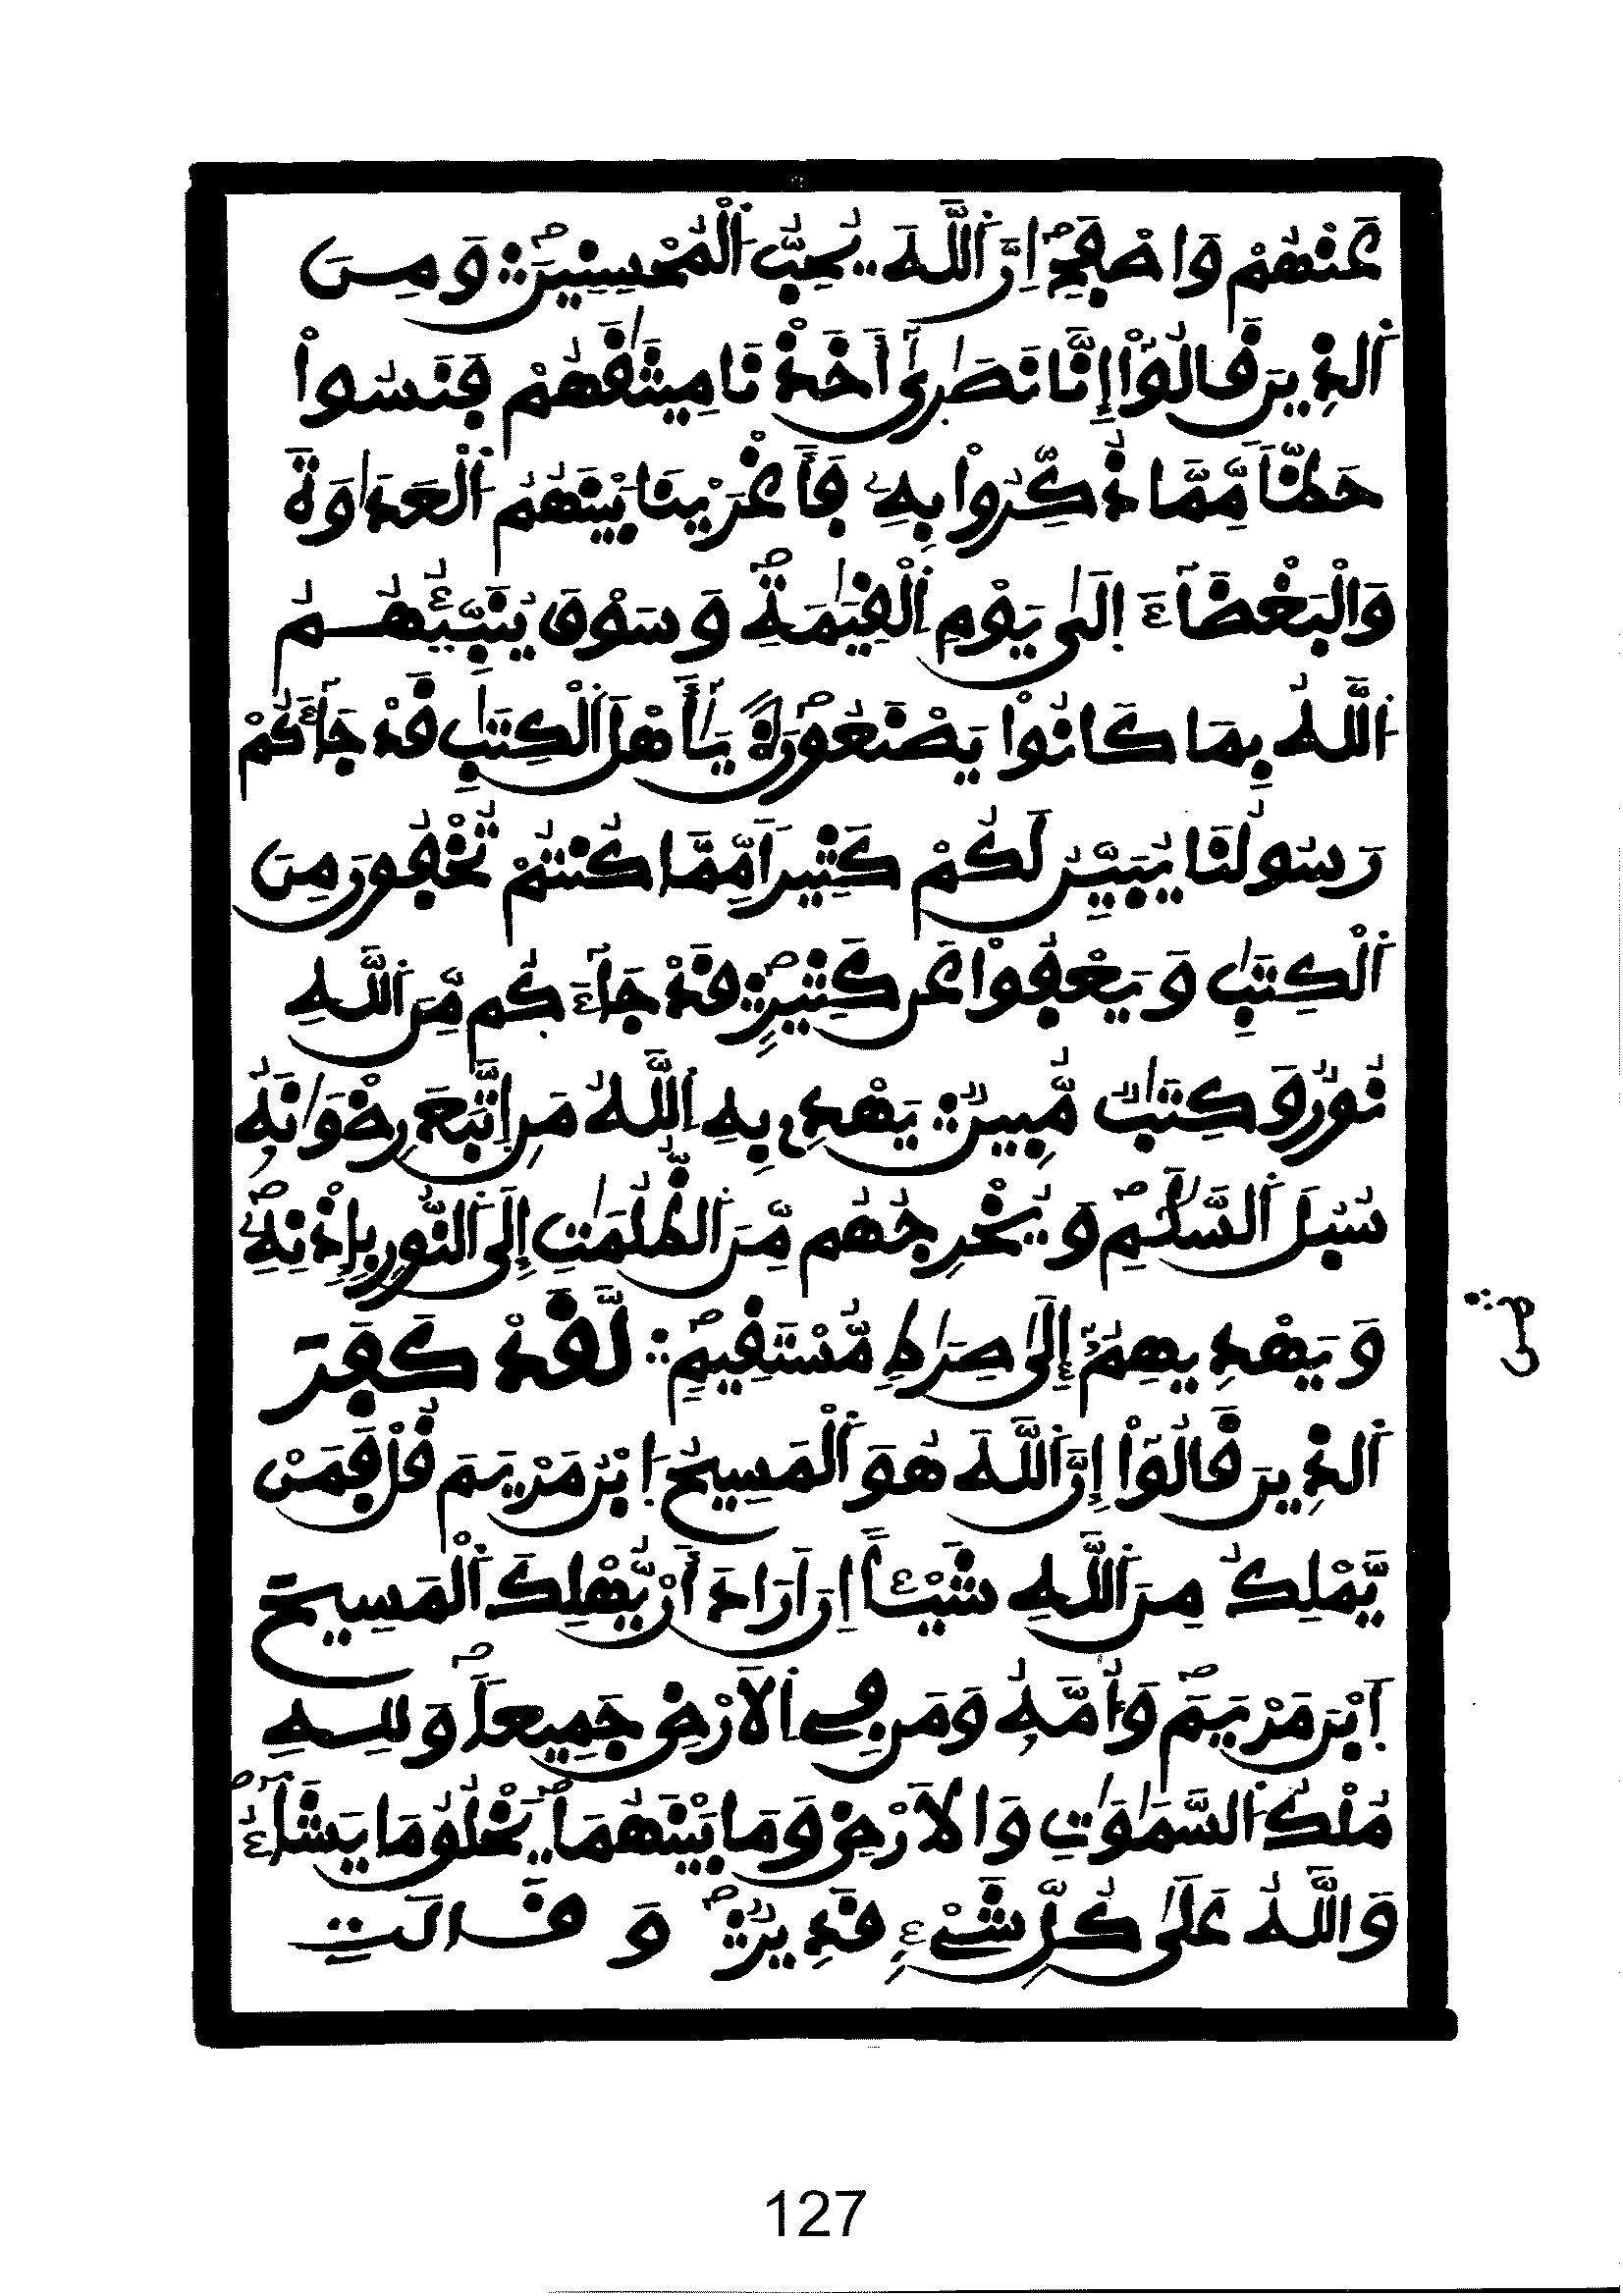 عَنْهُمْ وَاصْفَحِۖ اِنَّ اَ۬للَّهَ يُحِبُّ اُ۬لْمُحْسِنِينَۖ وَمِنَ
اَ۬لذِينَ قَالُوٓاْ إِنَّا نَصَٰر۪يٰٓ أَخَذْنَا مِيثَٰقَهُمْ فَنَسُواْ
حَظّاٗ مِّمَّا ذُكِّرُواْ بِهِۦ فَأَغْرَيْنَا بَيْنَهُمُ اُ۬لْعَدَٰوَةَ
وَالْبَغْضَآءَ اِلَىٰ يَوْمِ اِ۬لْقِيَٰمَةِۖ وَسَوْفَ يُنَبِّئُهُمُ
اُ۬للَّهُ بِمَا كَانُواْ يَصْنَعُونَۖ يَٰٓأَهْلَ اَ۬لْكِتَٰبِ قَدْ جَآءَكُمْ
رَسُولُنَا يُبَيِّنُ لَكُمْ كَثِيراٗ مِّمَّا كُنتُمْ تُخْفُونَ مِنَ
اَ۬لْكِتَٰبِ وَيَعْفُواْ عَن كَثِيرٖۖ قَدْ جَآءَكُم مِّنَ اَ۬للَّهِ
نُورٞ وَكِتَٰبٞ مُّبِينٞ يَهْدِے بِهِ اِ۬للَّهُ مَنِ اِ۪تَّبَعَ رِضْوَٰنَهُۥ
سُبُلَ اَ۬لسَّلَٰمِۖ وَيُخْرِجُهُم مِّنَ اَ۬لظُّلُمَٰتِ إِلَى اَ۬لنُّورِ بِإِذْنِهِۦۖ
وَيَهْدِيهِمُۥٓ إِلَىٰ صِرَٰطٖ مُّسْتَقِيمٖۖ لَّقَدْ كَفَرَ
اَ۬لذِينَ قَالُوٓاْ إِنَّ اَ۬للَّهَ هُوَ اَ۬لْمَسِيحُ اُ۪بْنُ مَرْيَمَ قُلْ فَمَنْ
يَّمْلِكُ مِنَ اَ۬للَّهِ شَيْـٔاً اِنَ اَرَادَ أَنْ يُّهْلِكَ اَ۬لْمَسِيحَ
اَ۪بْنَ مَرْيَمَ وَأُمَّهُۥ وَمَن فِے اِ۬لَارْضِ جَمِيعاٗۖ وَلِلهِ
مُلْكُ اُ۬لسَّمَٰوَٰتِ وَالَارْضِ وَمَا بَيْنَهُمَاۖ يَخْلُقُ مَا يَشَآءُۖ
وَاللَّهُ عَلَىٰ كُلِّ شَےْءٖ قَدِيرٞۖ وَقَالَتِ
ثمن
127